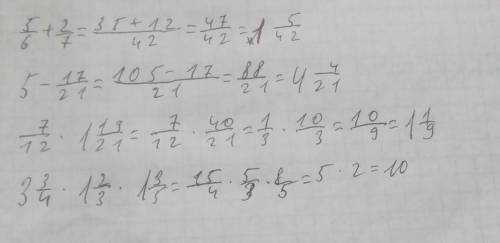 5/6 + 2/7 = (35 + 12)/42 = 47/42 = 1 5/42
5 - 17/21 = (105 - 17)/21 = 88/21 = 4 4/21
7/12 · 1 19/21 = 7/12 · 40/21 = 1/3 · 10/3 = 10/9 = 1 1/9
3 3/4 · 1 2/3 · 1 3/5 = 15/4 · 5/3 · 8/5 = 5 · 2 = 10